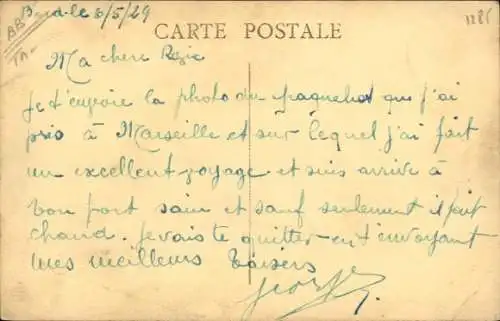 le 8/5/29
CARTE POSTALE
Ma chere
Je t'envoie la photo du paquebot que j'ai
pris à Marseille et sur lequel j'ai fait
un excellent voyage et suis arrivé à
bon port sain et sauf seulement il fait
chaud. Je vais te quitter en t'envoyant
mes meilleurs baisers